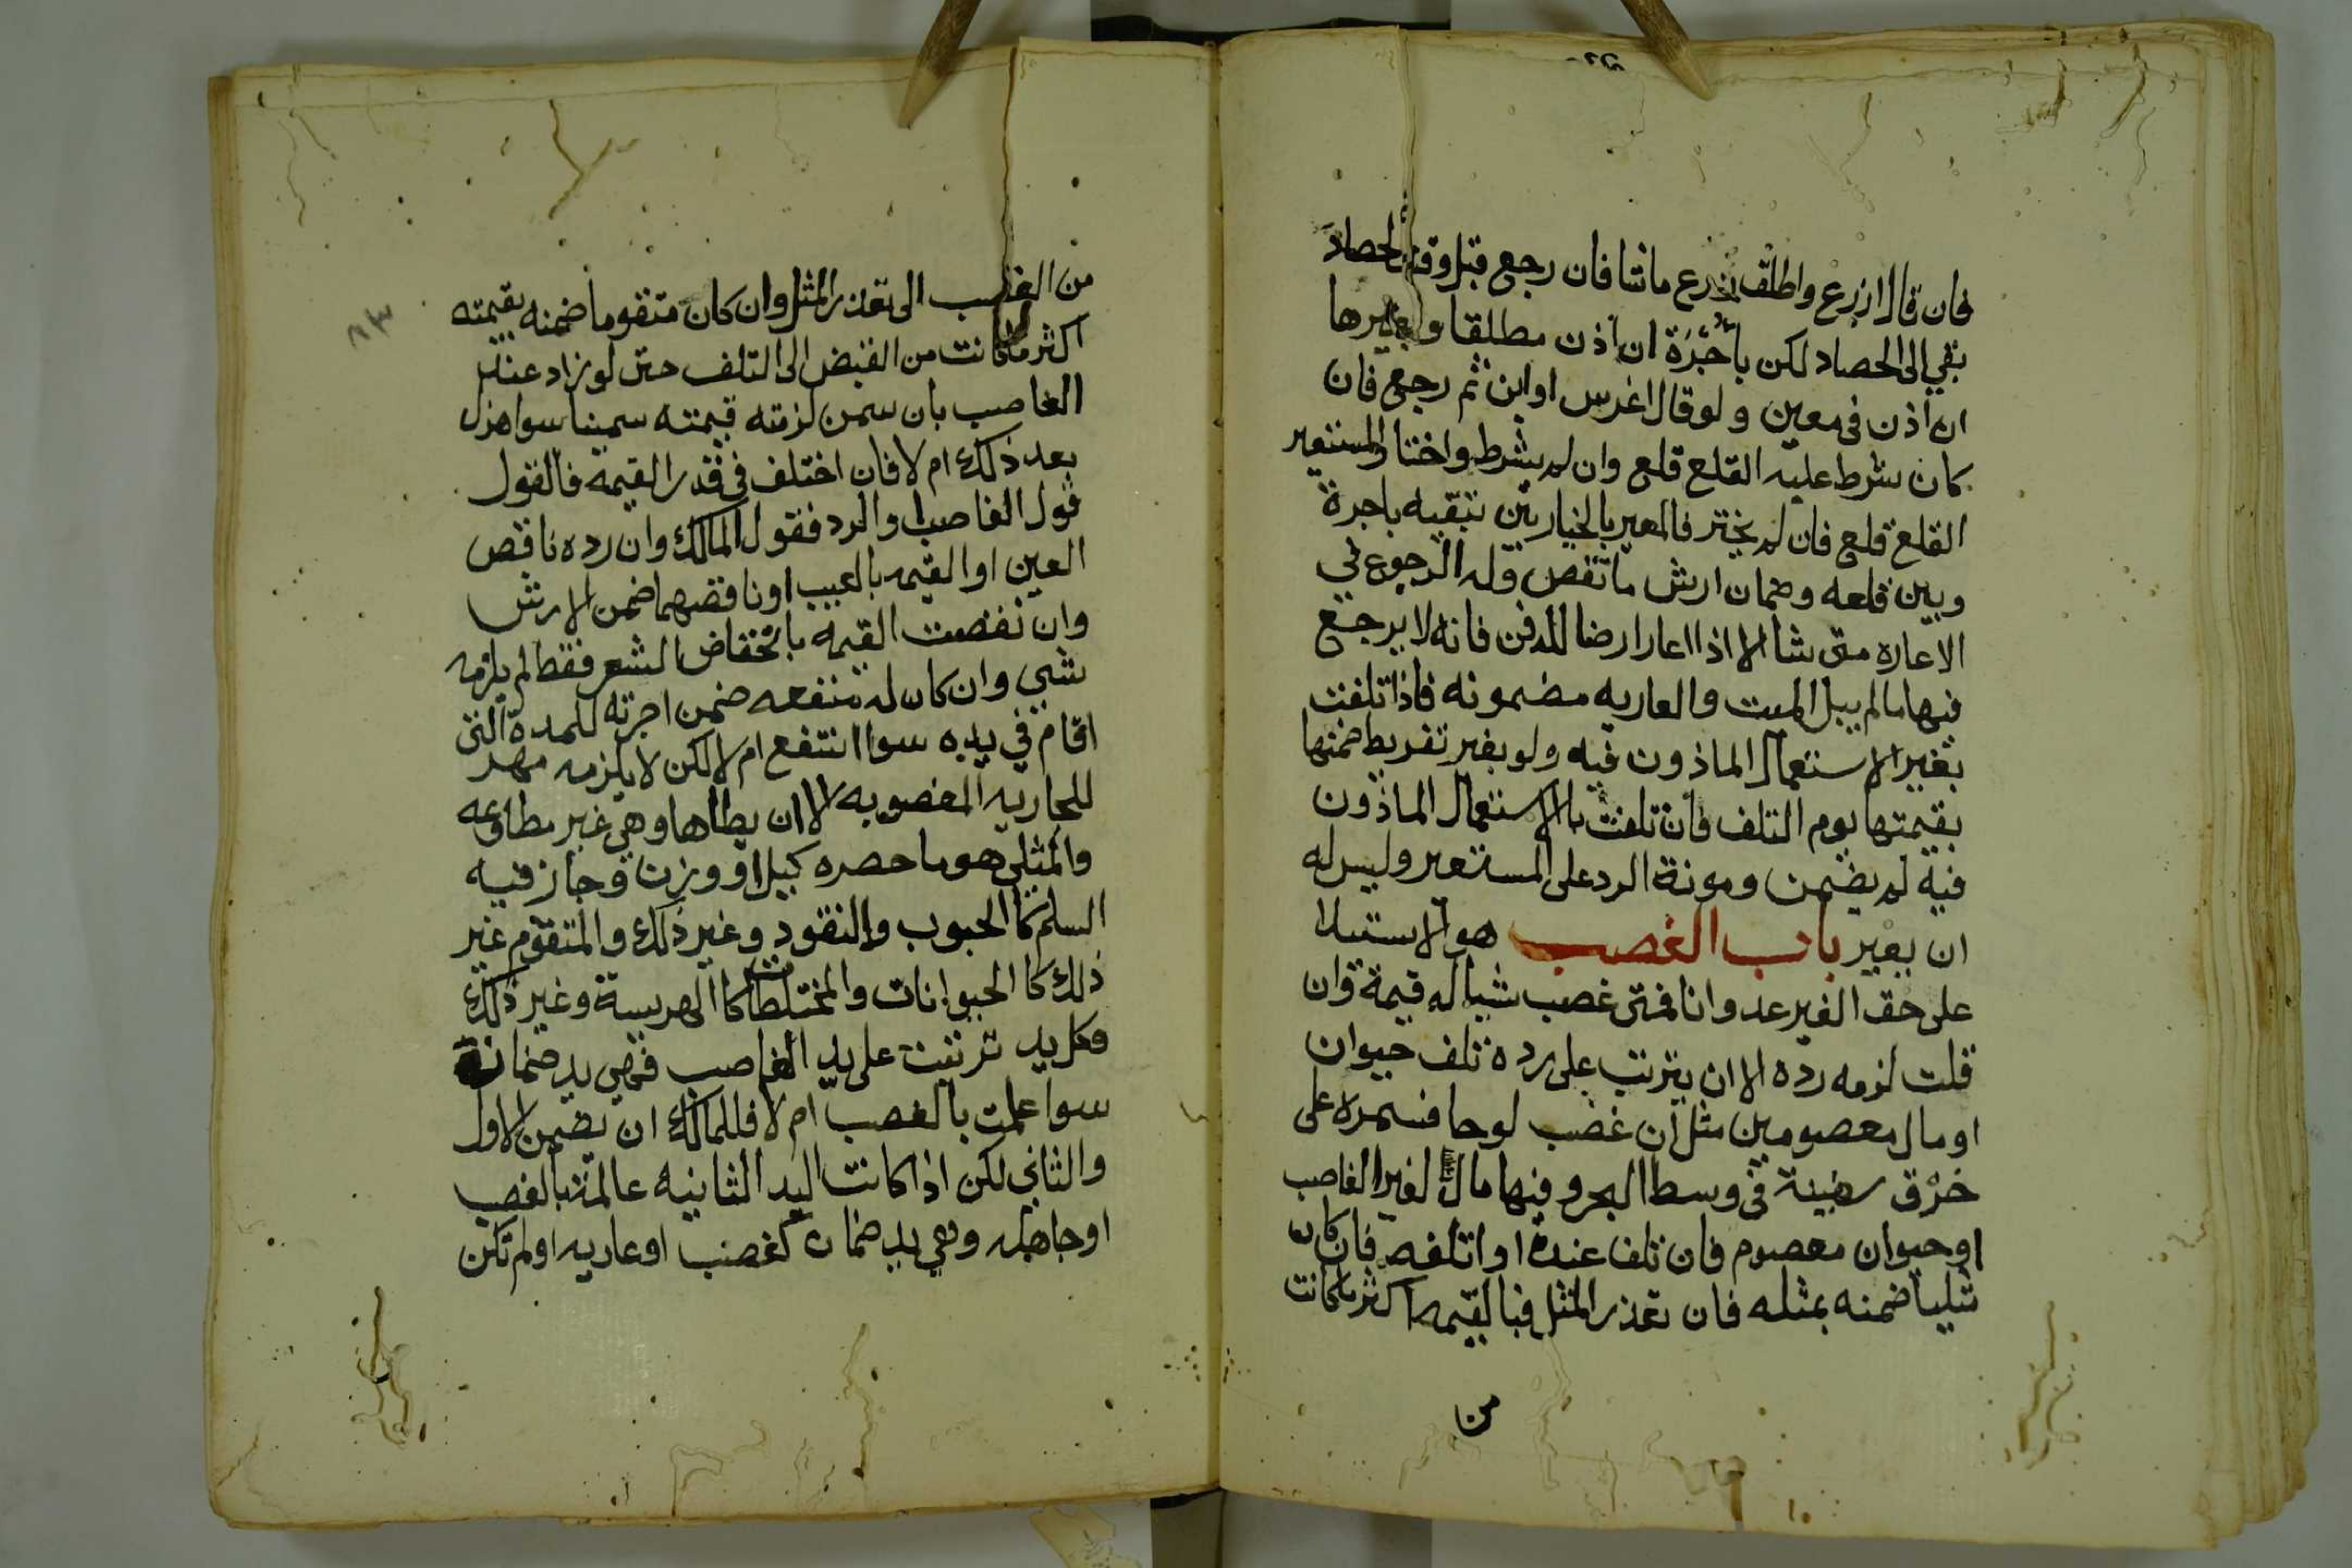 فان قال ازرع واطلق زرع ماشا فان رجع قبل وقت الحصاد
بقي الى الحصاد لكن بأجْرَة ان اذن مطلقا وبغيرها
ان اذن في معين ولو قال اغرس او ابن ثم رجع فان
كان شرط عليه القلع قلع وان لم يشرط واختار المستعير
القلع قلع فان لم يختر فالمعير بالخيار بين تبقيه باجرة
وبين قلعه وضمان ارش ما نقص وله الرجوع في
الاعارة متى شا الا اذا اعار ارضا للدفن فانه لا يرجع
فيها مالم يبل الميت والعاريه مضمونه فاذا تلفت
بغير الاستعمال الماذون فيه ولو بغير تفريط ضمنها
بقيمتها يوم التلف فان تلفت بالاستعمال الماذون
فيه لم يضمن ومونة الرد على المستعير وليس له
ان يعير باب الغصب هو الاستيلا
على حق الغير عدوانا فمتى غصب شيا له قيمة وان
قلت لزمه رده الا ان يترتب على رده تلف حيوان
او مال معصومين مثل ان غصب لوحا فسمره على
خرْق سفينة في وسط البحر وفيها مال لغير الغاصب
او حيوان معصوم فان تلف عنده او اتلفه فان كان
مثليا ضمنه بمثله فان تعذر المثل فبالقيمه اكثر ما كانت
من
من الغصب الى تعذر المثل وان كان متقوما ضمنه بقيمته
اكثر ما كانت من القبض الى التلف حتى لو زاد عند
الغاصب بان سمن لزمته قيمته سمينا سوا هزل
بعد ذلك ام لا فان اختلف في قدر القيمه فالقول
قول الغاصب او الرد فقول المالك وان رده ناقص
العين او القيمه بالعيب او ناقصهما ضمن الارش
وان نقصت القيمه بانخفاض السعر فقط لم يلزمه
شي وان كان له منفعه ضمن اجرته للمدة التي
اقام في يده سوا انتفع ام لا لكن لا يلزمه مهر
للجاريه المغصوبه الا ان يطاها وهي غير مطاوعه
والمثلي هو ما حصره كيل او وزن وجاز فيه
السلم كالحبوب والنقود وغير ذلك والمتقوم غير
ذلك كا الحيوانات والمختلطات كا الهريسة وغير ذلك
وكل يد ترتبت على يد الغاصب فهي يد ضمان
سوا علمت بالغصب ام لا فللمالك ان يضمن الاول
والثاني لكن اذا كانت اليد الثانيه عالمة بالغصب
او جاهله وهي يد ضمان كغصب او عاريه او لم تكن